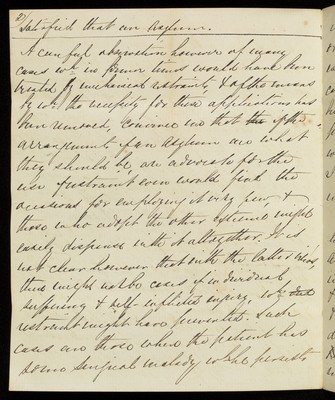 27/
Satisfied that an Asylum.
A careful observation however of many
cases wh in former times would have been
treated by mechanical restraint, & of the means
by wh the necessity for these applications has
been removed, convince me that if the
arrangements of an Asylum are what
they should be, an advocate for the
use of restraint even would find the
occasions for employing it very few &
those who adopt the other extreme might
easily dispense with it altogether. It is
not clear however that with the latter
there might not be cases of individual
suffering & self-inflicted injury, wh
restraint might have prevented. Such
cases are those where the patient has
some surgical malady wh he persist